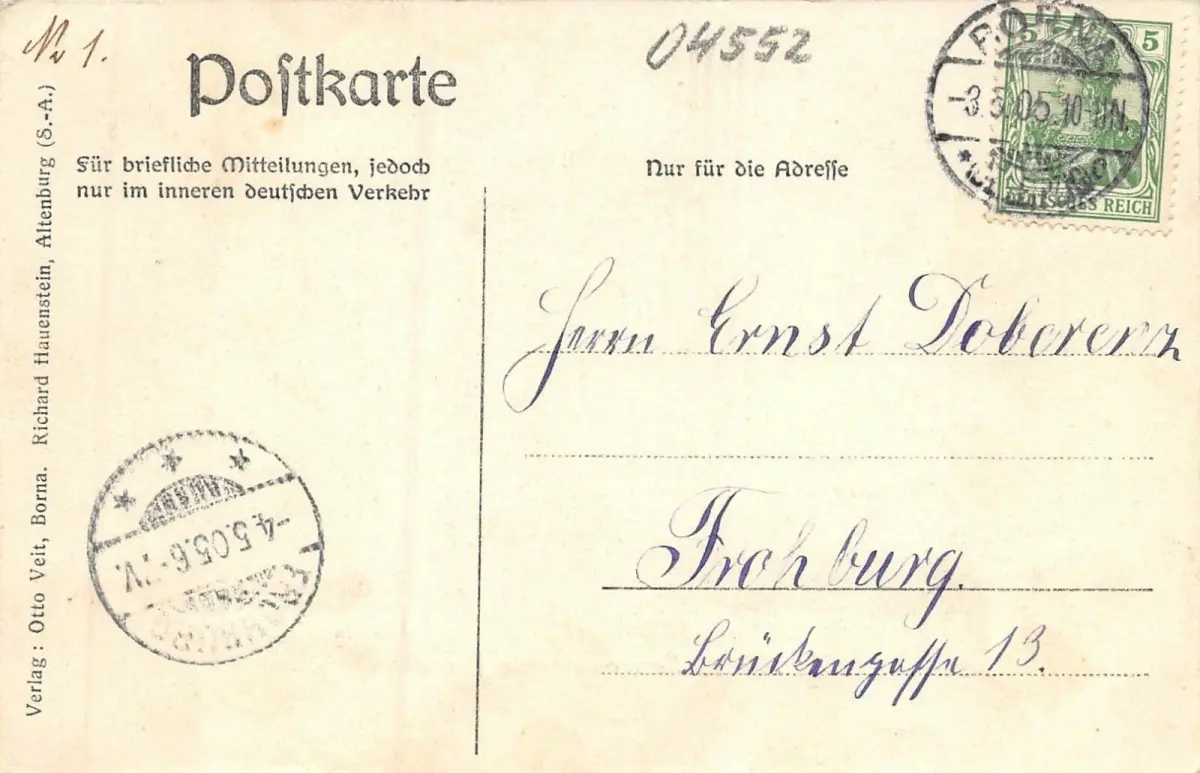 No 1.
04552
Postkarte
Für briefliche Mitteilungen, jedoch
nur im inneren deutschen Verkehr
Nur für die Adresse
BORNA
-3.5.05.10-11N.
5 5
DEUTSCHES REICH
Herrn Ernst Doberenz
Frohburg.
Brückengasse 13.
-4.5.05.6-7V.
FROHBURG
Verlag: Otto Veit, Borna. Richard Hauenstein, Altenburg (S.-A.)